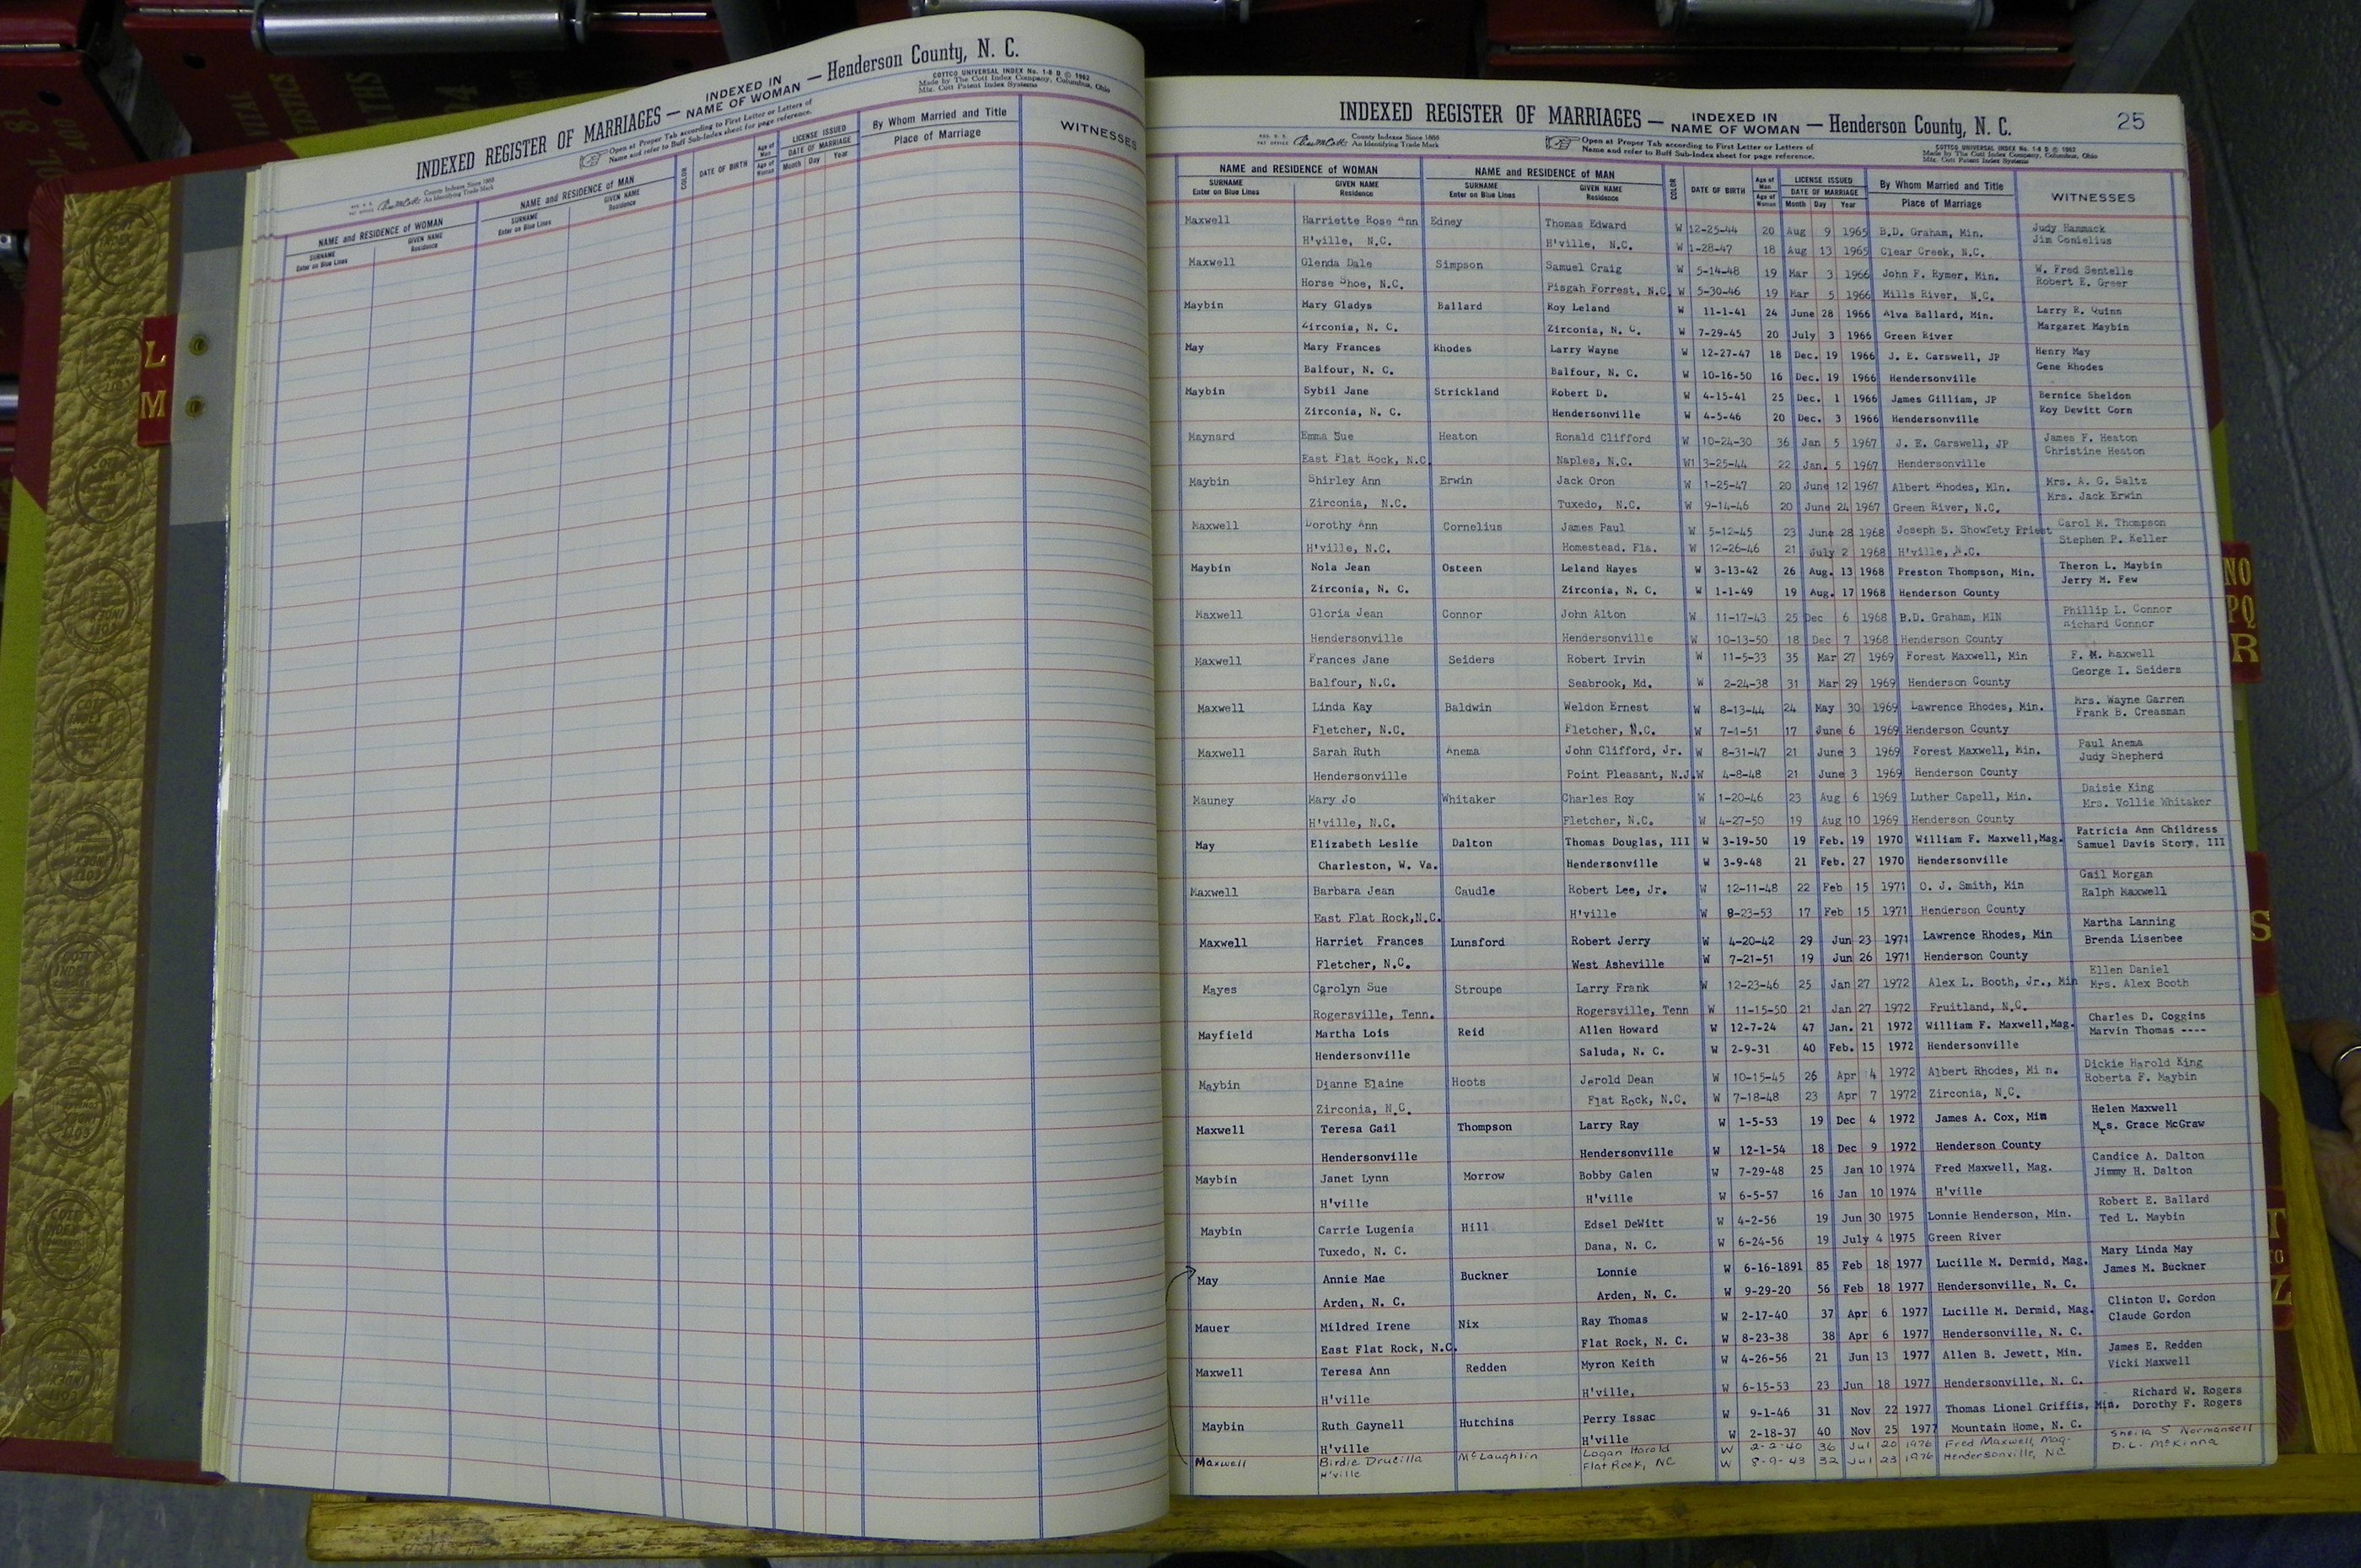 INDEXED REGISTER OF MARRIAGES — INDEXED IN NAME OF WOMAN — Henderson County, N. C.
COTTCO UNIVERSAL INDEX No. 1-8 D © 1962
Made by The Cott Index Company, Columbus, Ohio
Mfg. Cott Patent Index Systems
County Indexes Since 1888
An Identifying Trade Mark
Open at Proper Tab according to First Letter or Letters of
Name and refer to Buff Sub-Index sheet for page reference.
NAME and RESIDENCE OF WOMAN
SURNAME Enter on Blue Lines
GIVEN NAME Residence
NAME and RESIDENCE OF MAN
SURNAME Enter on Blue Lines
GIVEN NAME Residence
COLOR
DATE OF BIRTH
Age of Man
Age of Woman
LICENSE ISSUED
DATE OF MARRIAGE
Month Day Year
By Whom Married and Title
Place of Marriage
WITNESSES
L
M
INDEXED REGISTER OF MARRIAGES — INDEXED IN NAME OF WOMAN — Henderson County, N. C.
25
County Indexes Since 1888
An Identifying Trade Mark
Open at Proper Tab according to First Letter or Letters of
Name and refer to Buff Sub-Index sheet for page reference.
COTTCO UNIVERSAL INDEX No. 1-8 D © 1962
Made by The Cott Index Company, Columbus, Ohio
Mfg. Cott Patent Index Systems
NAME and RESIDENCE OF WOMAN
SURNAME Enter on Blue Lines
GIVEN NAME Residence
NAME and RESIDENCE OF MAN
SURNAME Enter on Blue Lines
GIVEN NAME Residence
COLOR
DATE OF BIRTH
Age of Man
Age of Woman
LICENSE ISSUED
DATE OF MARRIAGE
Month Day Year
By Whom Married and Title
Place of Marriage
WITNESSES
Maxwell Harriette Rose Ann Edney Thomas Edward W 12-25-44 20 Aug 9 1965 B.D. Graham, Min. Judy Hammack
H'ville, N.C. H'ville, N.C. W 1-28-47 18 Aug 13 1965 Clear Creek, N.C. Jim Conielius
Maxwell Glenda Dale Simpson Samuel Craig W 5-14-48 19 Mar 3 1966 John F. Rymer, Min. W. Fred Sentelle
Horse Shoe, N.C. Pisgah Forrest, N.C. W 5-30-46 19 Mar 5 1966 Mills River, N.C. Robert E. Greer
Maybin Mary Gladys Ballard Roy Leland W 11-1-41 24 June 28 1966 Alva Ballard, Min. Larry E. Quinn
Zirconia, N. C. Zirconia, N. C. W 7-29-45 20 July 3 1966 Green River Margaret Maybin
May Mary Frances Rhodes Larry Wayne W 12-27-47 18 Dec. 19 1966 J. E. Carswell, JP Henry May
Balfour, N. C. Balfour, N. C. W 10-16-50 16 Dec. 19 1966 Hendersonville Gene Rhodes
Maybin Sybil Jane Strickland Robert D. W 4-15-41 25 Dec. 1 1966 James Gilliam, JP Bernice Sheldon
Zirconia, N. C. Hendersonville W 4-5-46 20 Dec. 3 1966 Hendersonville Roy Dewitt Corn
Maynard Emma Sue Heaton Ronald Clifford W 10-24-30 36 Jan 5 1967 J. E. Carswell, JP James F. Heaton
East Flat Rock, N.C. Naples, N.C. W1 3-25-44 22 Jan. 5 1967 Hendersonville Christine Heaton
Maybin Shirley Ann Erwin Jack Oron W 1-25-47 20 June 12 1967 Albert Rhodes, Min. Mrs. A. G. Saltz
Zirconia, N.C. Tuxedo, N.C. W 9-14-46 20 June 24 1967 Green River, N.C. Mrs. Jack Erwin
Maxwell Dorothy Ann Cornelius James Paul W 5-12-45 23 June 28 1968 Joseph S. Showfety Priest Carol M. Thompson
H'ville, N.C. Homestead. Fla. W 12-26-46 21 July 2 1968 H'ville, N.C. Stephen P. Keller
Maybin Nola Jean Osteen Leland Hayes W 3-13-42 26 Aug. 13 1968 Preston Thompson, Min. Theron L. Maybin
Zirconia, N. C. Zirconia, N. C. W 1-1-49 19 Aug. 17 1968 Henderson County Jerry M. Few
Maxwell Gloria Jean Connor John Alton W 11-17-43 25 Dec 6 1968 B.D. Graham, MIN Phillip L. Connor
Hendersonville Hendersonville W 10-13-50 18 Dec 7 1968 Henderson County Richard Connor
Maxwell Frances Jane Seiders Robert Irvin W 11-5-33 35 Mar 27 1969 Forest Maxwell, Min F. M. Maxwell
Balfour, N.C. Seabrook, Md. W 2-24-38 31 Mar 29 1969 Henderson County George I. Seiders
Maxwell Linda Kay Baldwin Weldon Ernest W 8-13-44 24 May 30 1969 Lawrence Rhodes, Min. Mrs. Wayne Garren
Fletcher, N.C. Fletcher, N.C. W 7-1-51 17 June 6 1969 Henderson County Frank B. Creasman
Maxwell Sarah Ruth Anema John Clifford, Jr. W 8-31-47 21 June 3 1969 Forest Maxwell, Min. Paul Anema
Hendersonville Point Pleasant, N.J. W 4-8-48 21 June 3 1969 Henderson County Judy Shepherd
Mauney Mary Jo Whitaker Charles Roy W 1-20-46 23 Aug 6 1969 Luther Capell, Min. Daisie King
H'ville, N.C. Fletcher, N.C. W 4-27-50 19 Aug 10 1969 Henderson County Mrs. Vollie Whitaker
May Elizabeth Leslie Dalton Thomas Douglas, III W 3-19-50 19 Feb. 19 1970 William F. Maxwell,Mag. Patricia Ann Childress
Charleston, W. Va. Hendersonville W 3-9-48 21 Feb. 27 1970 Hendersonville Samuel Davis Story, III
Maxwell Barbara Jean Caudle Robert Lee, Jr. W 12-11-48 22 Feb 15 1971 O. J. Smith, Min Gail Morgan
East Flat Rock,N.C. H'ville W 8-23-53 17 Feb 15 1971 Henderson County Ralph Maxwell
Maxwell Harriet Frances Lunsford Robert Jerry W 4-20-42 29 Jun 23 1971 Lawrence Rhodes, Min Martha Lanning
Fletcher, N.C. West Asheville W 7-21-51 19 Jun 26 1971 Henderson County Brenda Lisenbee
Mayes Carolyn Sue Stroupe Larry Frank W 12-23-46 25 Jan 27 1972 Alex L. Booth, Jr., Min Ellen Daniel
Rogersville, Tenn. Rogersville, Tenn W 11-15-50 21 Jan 27 1972 Fruitland, N.C. Mrs. Alex Booth
Mayfield Martha Lois Reid Allen Howard W 12-7-24 47 Jan. 21 1972 William F. Maxwell,Mag. Charles D. Coggins
Hendersonville Saluda, N. C. W 2-9-31 40 Feb. 15 1972 Hendersonville Marvin Thomas ----
Maybin Dianne Elaine Hoots Jerold Dean W 10-15-45 26 Apr 4 1972 Albert Rhodes, Min. Dickie Harold King
Zirconia, N.C. Flat Rock, N.C. W 7-18-48 23 Apr 7 1972 Zirconia, N.C. Roberta F. Maybin
Maxwell Teresa Gail Thompson Larry Ray W 1-5-53 19 Dec 4 1972 James A. Cox, Min Helen Maxwell
Hendersonville Hendersonville W 12-1-54 18 Dec 9 1972 Henderson County Mrs. Grace McGraw
Maybin Janet Lynn Morrow Bobby Galen W 7-29-48 25 Jan 10 1974 Fred Maxwell, Mag. Candice A. Dalton
H'ville H'ville W 6-5-57 16 Jan 10 1974 H'ville Jimmy H. Dalton
Maybin Carrie Lugenia Hill Edsel DeWitt W 4-2-56 19 Jun 30 1975 Lonnie Henderson, Min. Robert E. Ballard
Tuxedo, N. C. Dana, N. C. W 6-24-56 19 July 4 1975 Green River Ted L. Maybin
May Annie Mae Buckner Lonnie W 6-16-1891 85 Feb 18 1977 Lucille M. Dermid, Mag. Mary Linda May
Arden, N. C. Arden, N. C. W 9-29-20 56 Feb 18 1977 Hendersonville, N. C. James M. Buckner
Mauer Mildred Irene Nix Ray Thomas W 2-17-40 37 Apr 6 1977 Lucille M. Dermid, Mag. Clinton U. Gordon
East Flat Rock, N.C. Flat Rock, N. C. W 8-23-38 38 Apr 6 1977 Hendersonville, N. C. Claude Gordon
Maxwell Teresa Ann Redden Myron Keith W 4-26-56 21 Jun 13 1977 Allen B. Jewett, Min. James E. Redden
H'ville H'ville, W 6-15-53 23 Jun 18 1977 Hendersonville, N. C. Vicki Maxwell
Maybin Ruth Gaynell Hutchins Perry Issac W 9-1-46 31 Nov 22 1977 Thomas Lionel Griffis, Min. Richard W. Rogers
H'ville H'ville W 2-18-37 40 Nov 25 1977 Mountain Home, N. C. Dorothy F. Rogers
Maxwell Birdie Drucilla McLaughlin Logan Harold W 2-2-40 36 Jul 20 1976 Fred Maxwell, Mag. Sheila S Normansell
H'ville Flat Rock, NC W 8-9-43 32 Jul 23 1976 Hendersonville, NC D.L. McKinna
NO
PQ
R
S
T
TO
Z